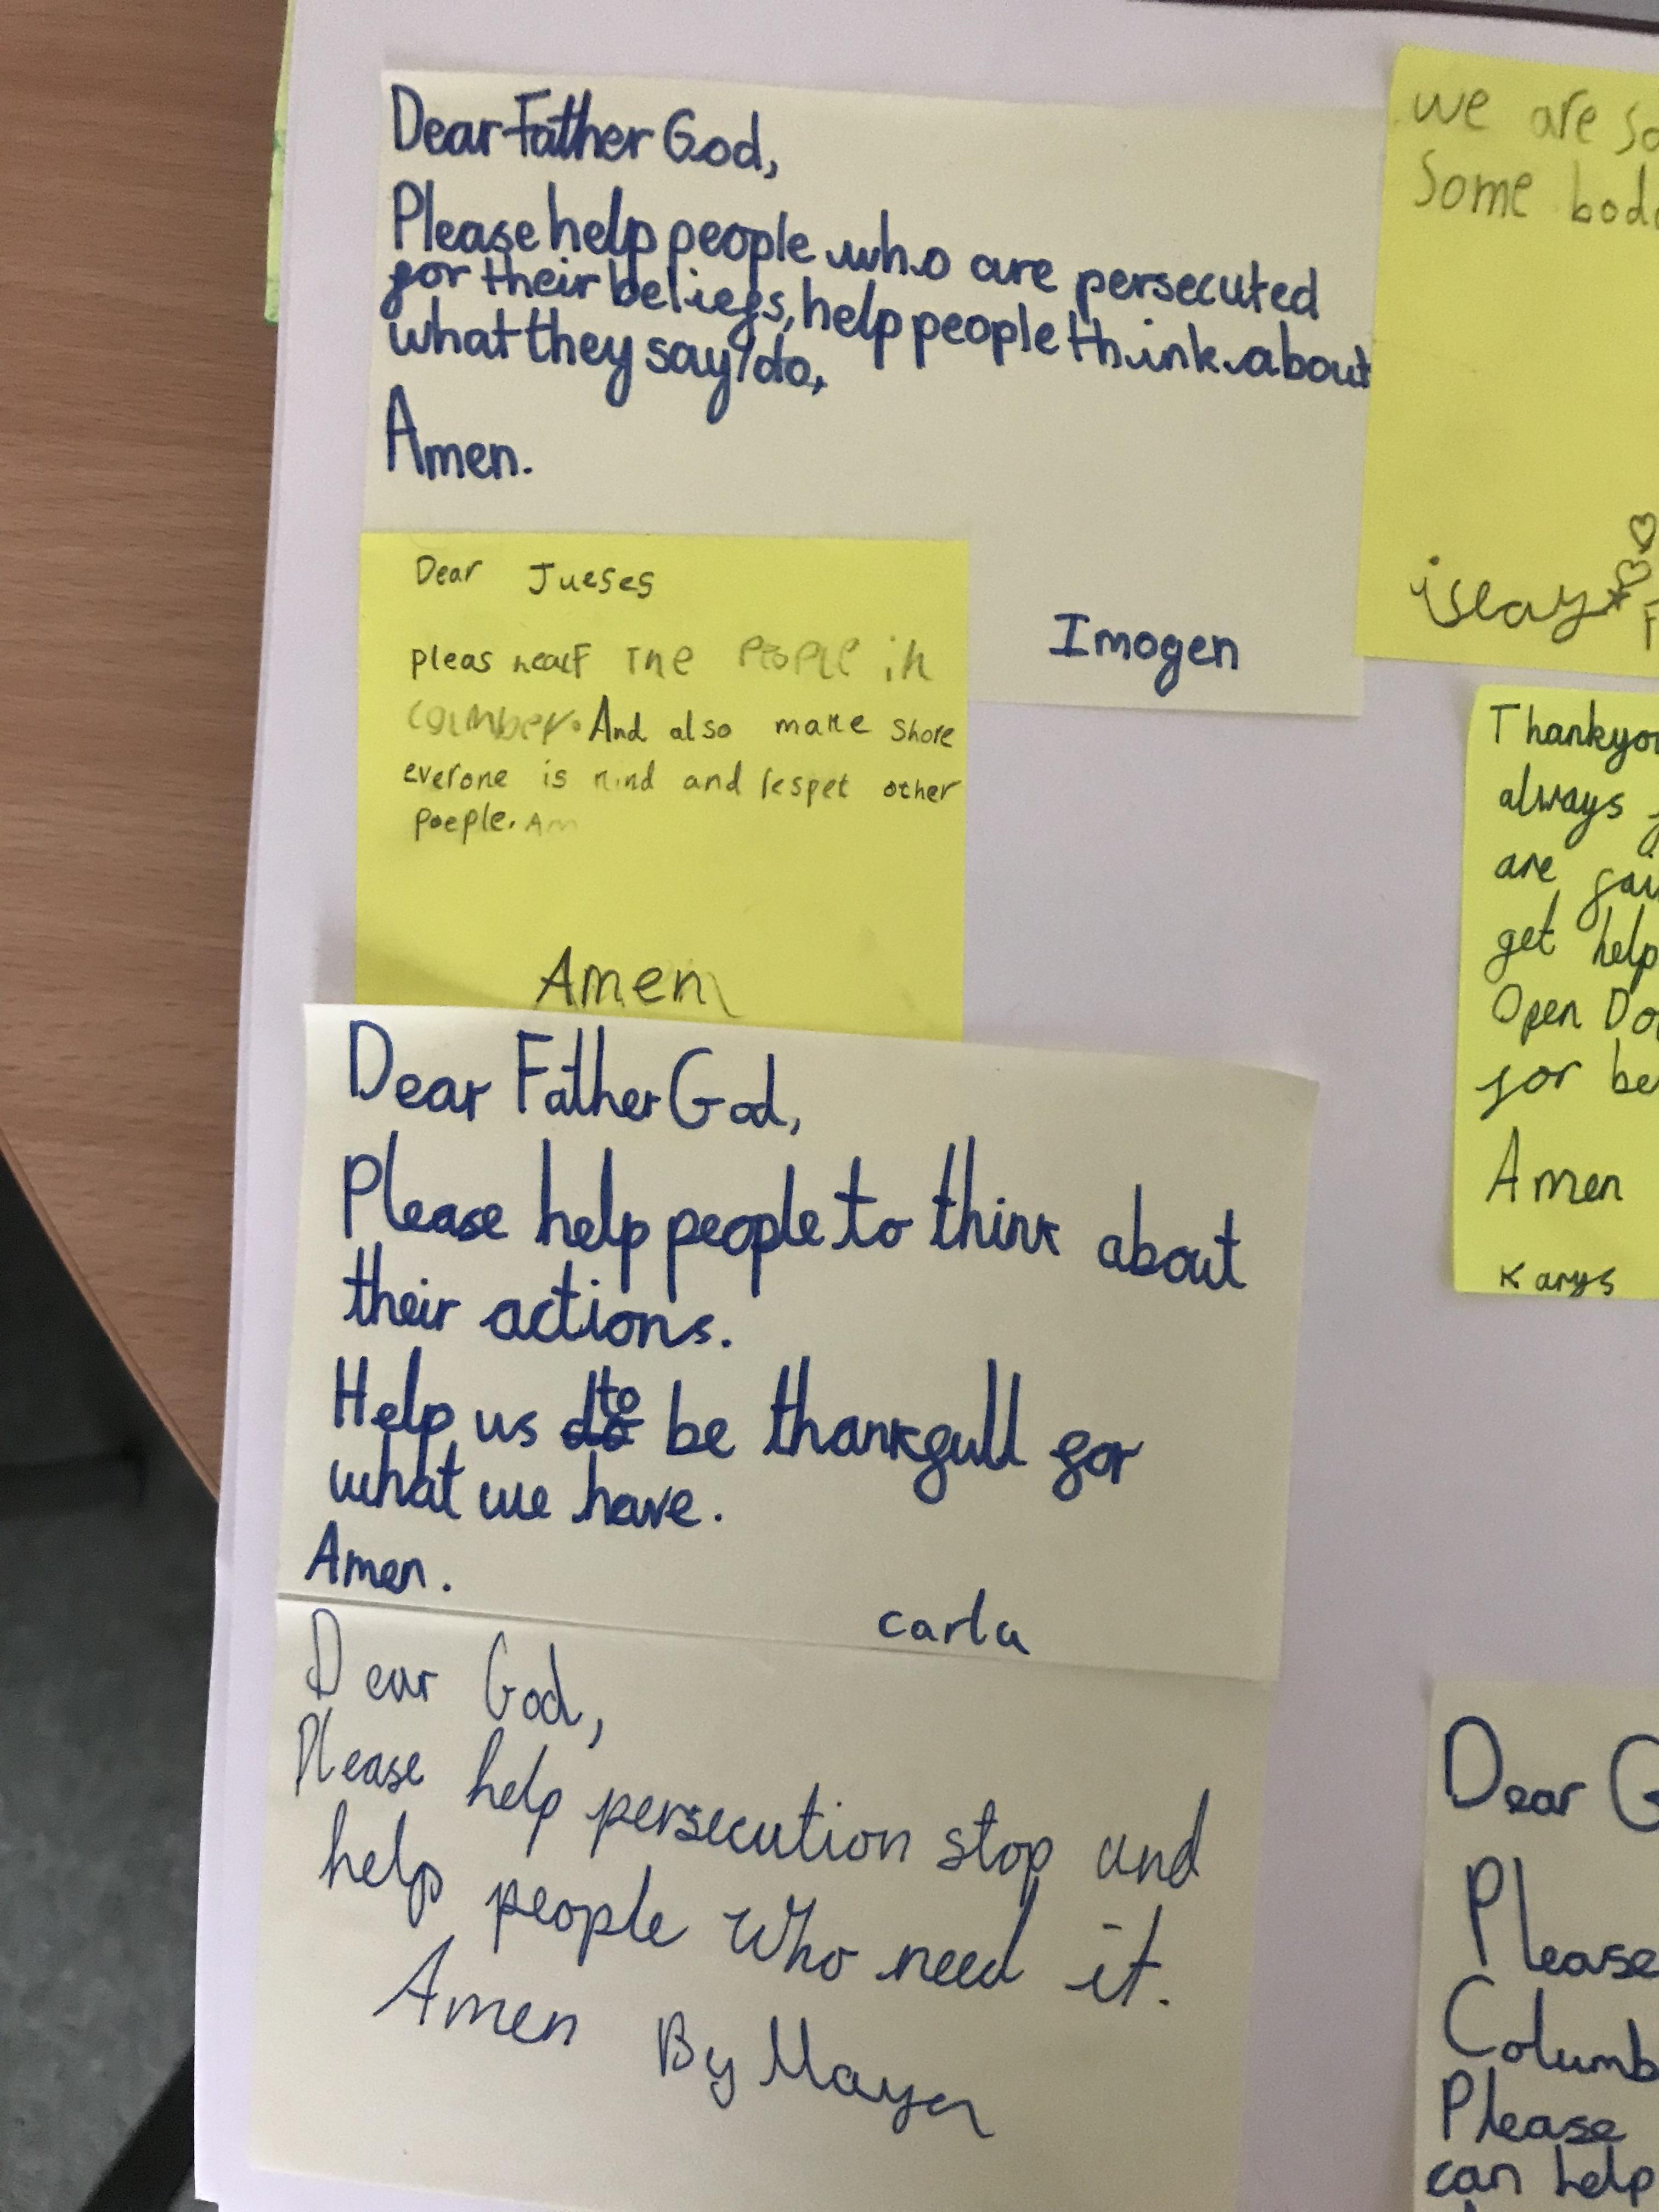 Dear Father God,
Please help people who are persecuted
for their beliefs, help people think about
what they say/do,
Amen.
Imogen
we are so
Some bod
islay
Dear Jueses
pleas the PEOPLE in
And also make shore
everone is kind and respet other
poeple. Am
Amen
Thankyou
always
are
get help
Open Do
for be
Amen
Karys
Dear Father God,
Please help people to think about
their actions.
Help us do to be thankfull for
what we have.
Amen.
carla
Dear God,
Please help persecution stop and
help people who need it.
Amen By Maya
Dear G
Please
Columb
Please
can help